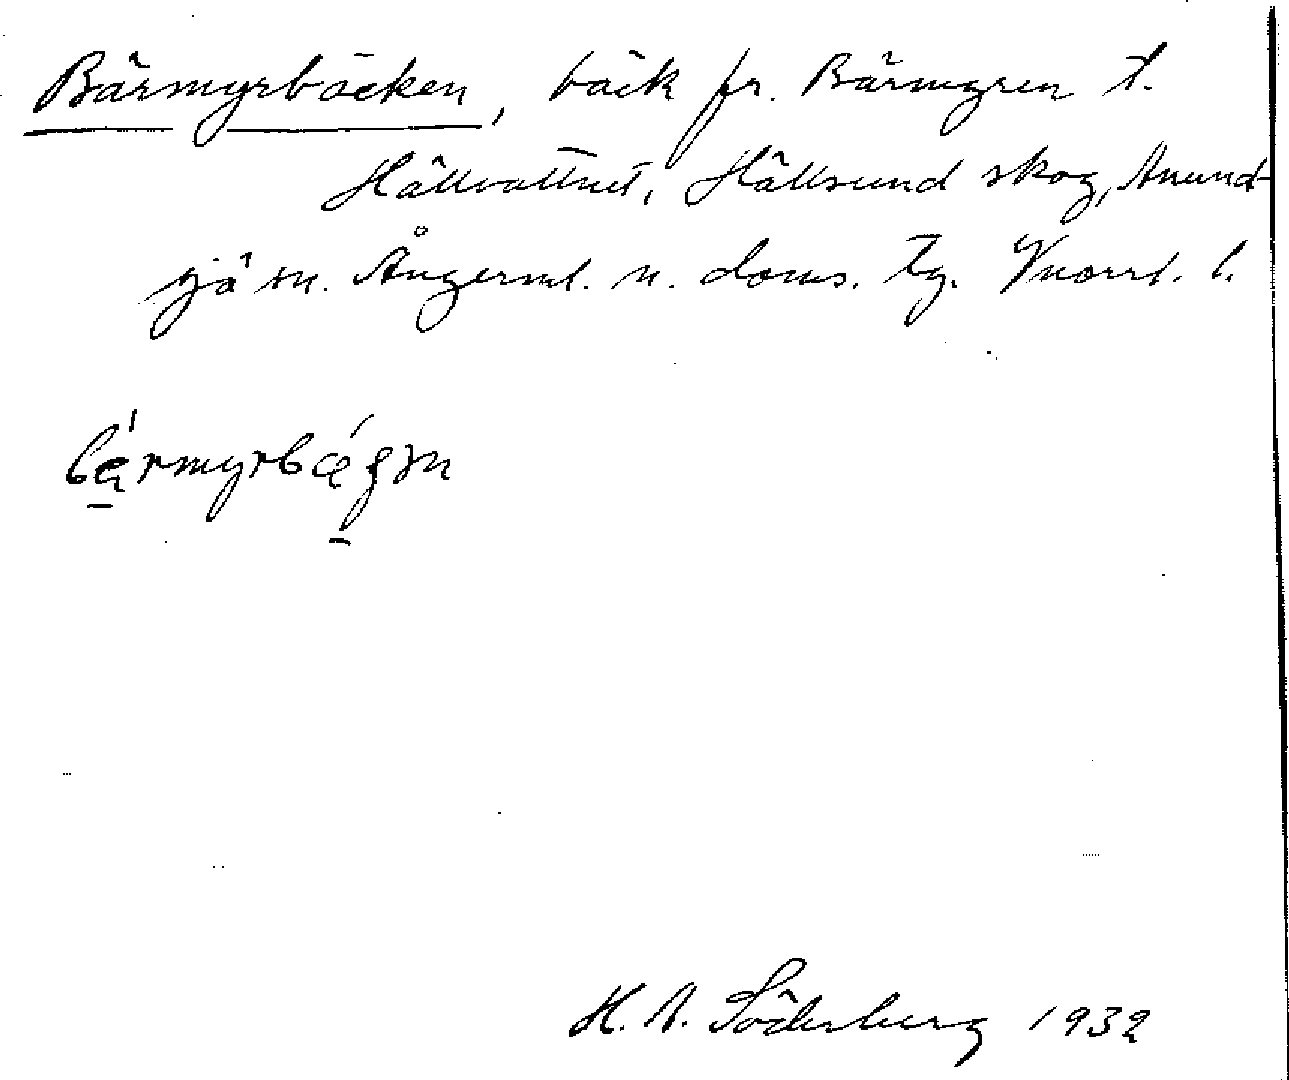 Bärmyrbäcken, bäck fr. Bärmyren t.
Hällvattnet, Hällsund skog, Anund-
sjö sn. Ångerml. n. doms. tg. Vnorrl. l.
bérmyrbæ´gɟn
H. A. Söderberg 1932